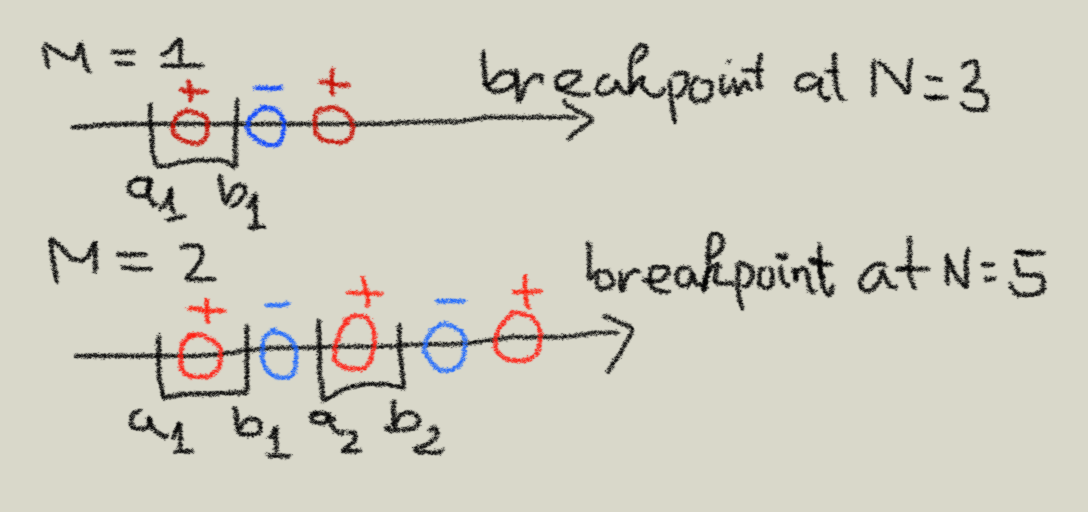 M = 1
+ - +
breakpoint at N=3
a1 b1
M = 2
+ - + - +
breakpoint at N=5
a1 b1 a2 b2